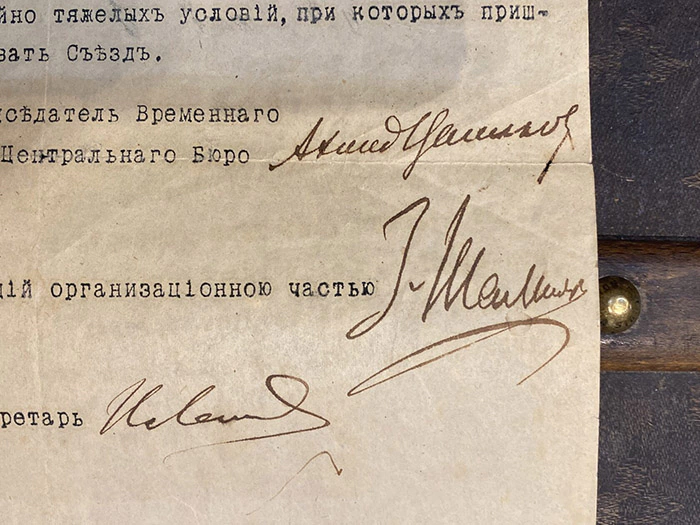 йно тяжелыхъ условій, при которыхъ приш-
вать Съѣздъ.
дсѣдатель Временнаго
Центральнаго Бюро Ахмед Цаликов
щій организаціонною частью З. Шамиль
ретарь